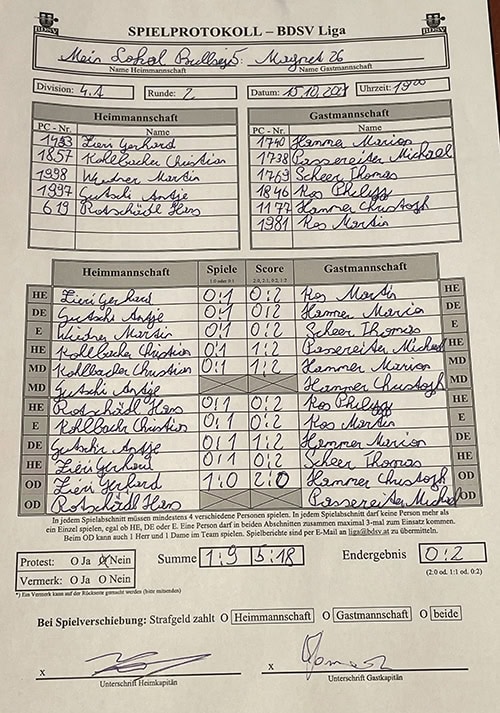 SPIELPROTOKOLL – BDSV Liga
Mein Lokal Bullseye : Magnet 26
Name Heimmannschaft Name Gastmannschaft
Division: 4.A Runde: 2 Datum: 15.10.2021 Uhrzeit: 19⁰⁰
Heimmannschaft Gastmannschaft
PC - Nr. Name PC - Nr. Name
1493 Zieri Gerhard 1740 Hammer Marion
1857 Kohlbacher Christian 1738 Passereiter Michael
1998 Wiedner Martin 1769 Scheer Thomas
1997 Gutschi Antje 1846 Kos Philipp
619 Rotschädl Hans 1177 Hammer Christoph
1981 Kos Martin
Heimmannschaft Spiele Score Gastmannschaft
1:0 oder 0:1 2:0, 2:1, 0:2, 1:2
HE Zieri Gerhard 0:1 0:2 Kos Martin HE
DE Gutschi Antje 0:1 0:2 Hammer Marion DE
E Wiedner Martin 0:1 0:2 Scheer Thomas E
HE Kohlbacher Christian 0:1 1:2 Passereiter Michael HE
MD Kohlbacher Christian 0:1 1:2 Hammer Marion MD
MD Gutschi Antje Hammer Christoph MD
HE Rotschädl Hans 0:1 0:2 Kos Philipp HE
E Kohlbacher Christian 0:1 0:2 Kos Martin E
DE Gutschi Antje 0:1 1:2 Hammer Marion DE
HE Zieri Gerhard 0:1 0:2 Scheer Thomas HE
OD Zieri Gerhard 1:0 2:0 Hammer Christoph OD
OD Rotschädl Hans Passereiter Michael OD
In jedem Spielabschnitt müssen mindestens 4 verschiedene Personen spielen. In jedem Spielabschnitt darf keine Person mehr als
ein Einzel spielen, egal ob HE, DE oder E. Eine Person darf in beiden Abschnitten zusammen maximal 3-mal zum Einsatz kommen.
Beim OD kann auch 1 Herr und 1 Dame im Team spielen. Spielberichte sind per E-Mail an liga@bdsv.at zu übermitteln.
Protest: O Ja O Nein Summe 1:9 5:18 Endergebnis 0:2
Vermerk: O Ja O Nein (2:0 od. 1:1 od. 0:2)
*) Ein Vermerk kann auf der Rückseite gemacht werden (bitte mitsenden)
Bei Spielverschiebung: Strafgeld zahlt O Heimmannschaft O Gastmannschaft O beide
x x
Unterschrift Heimkapitän Unterschrift Gastkapitän